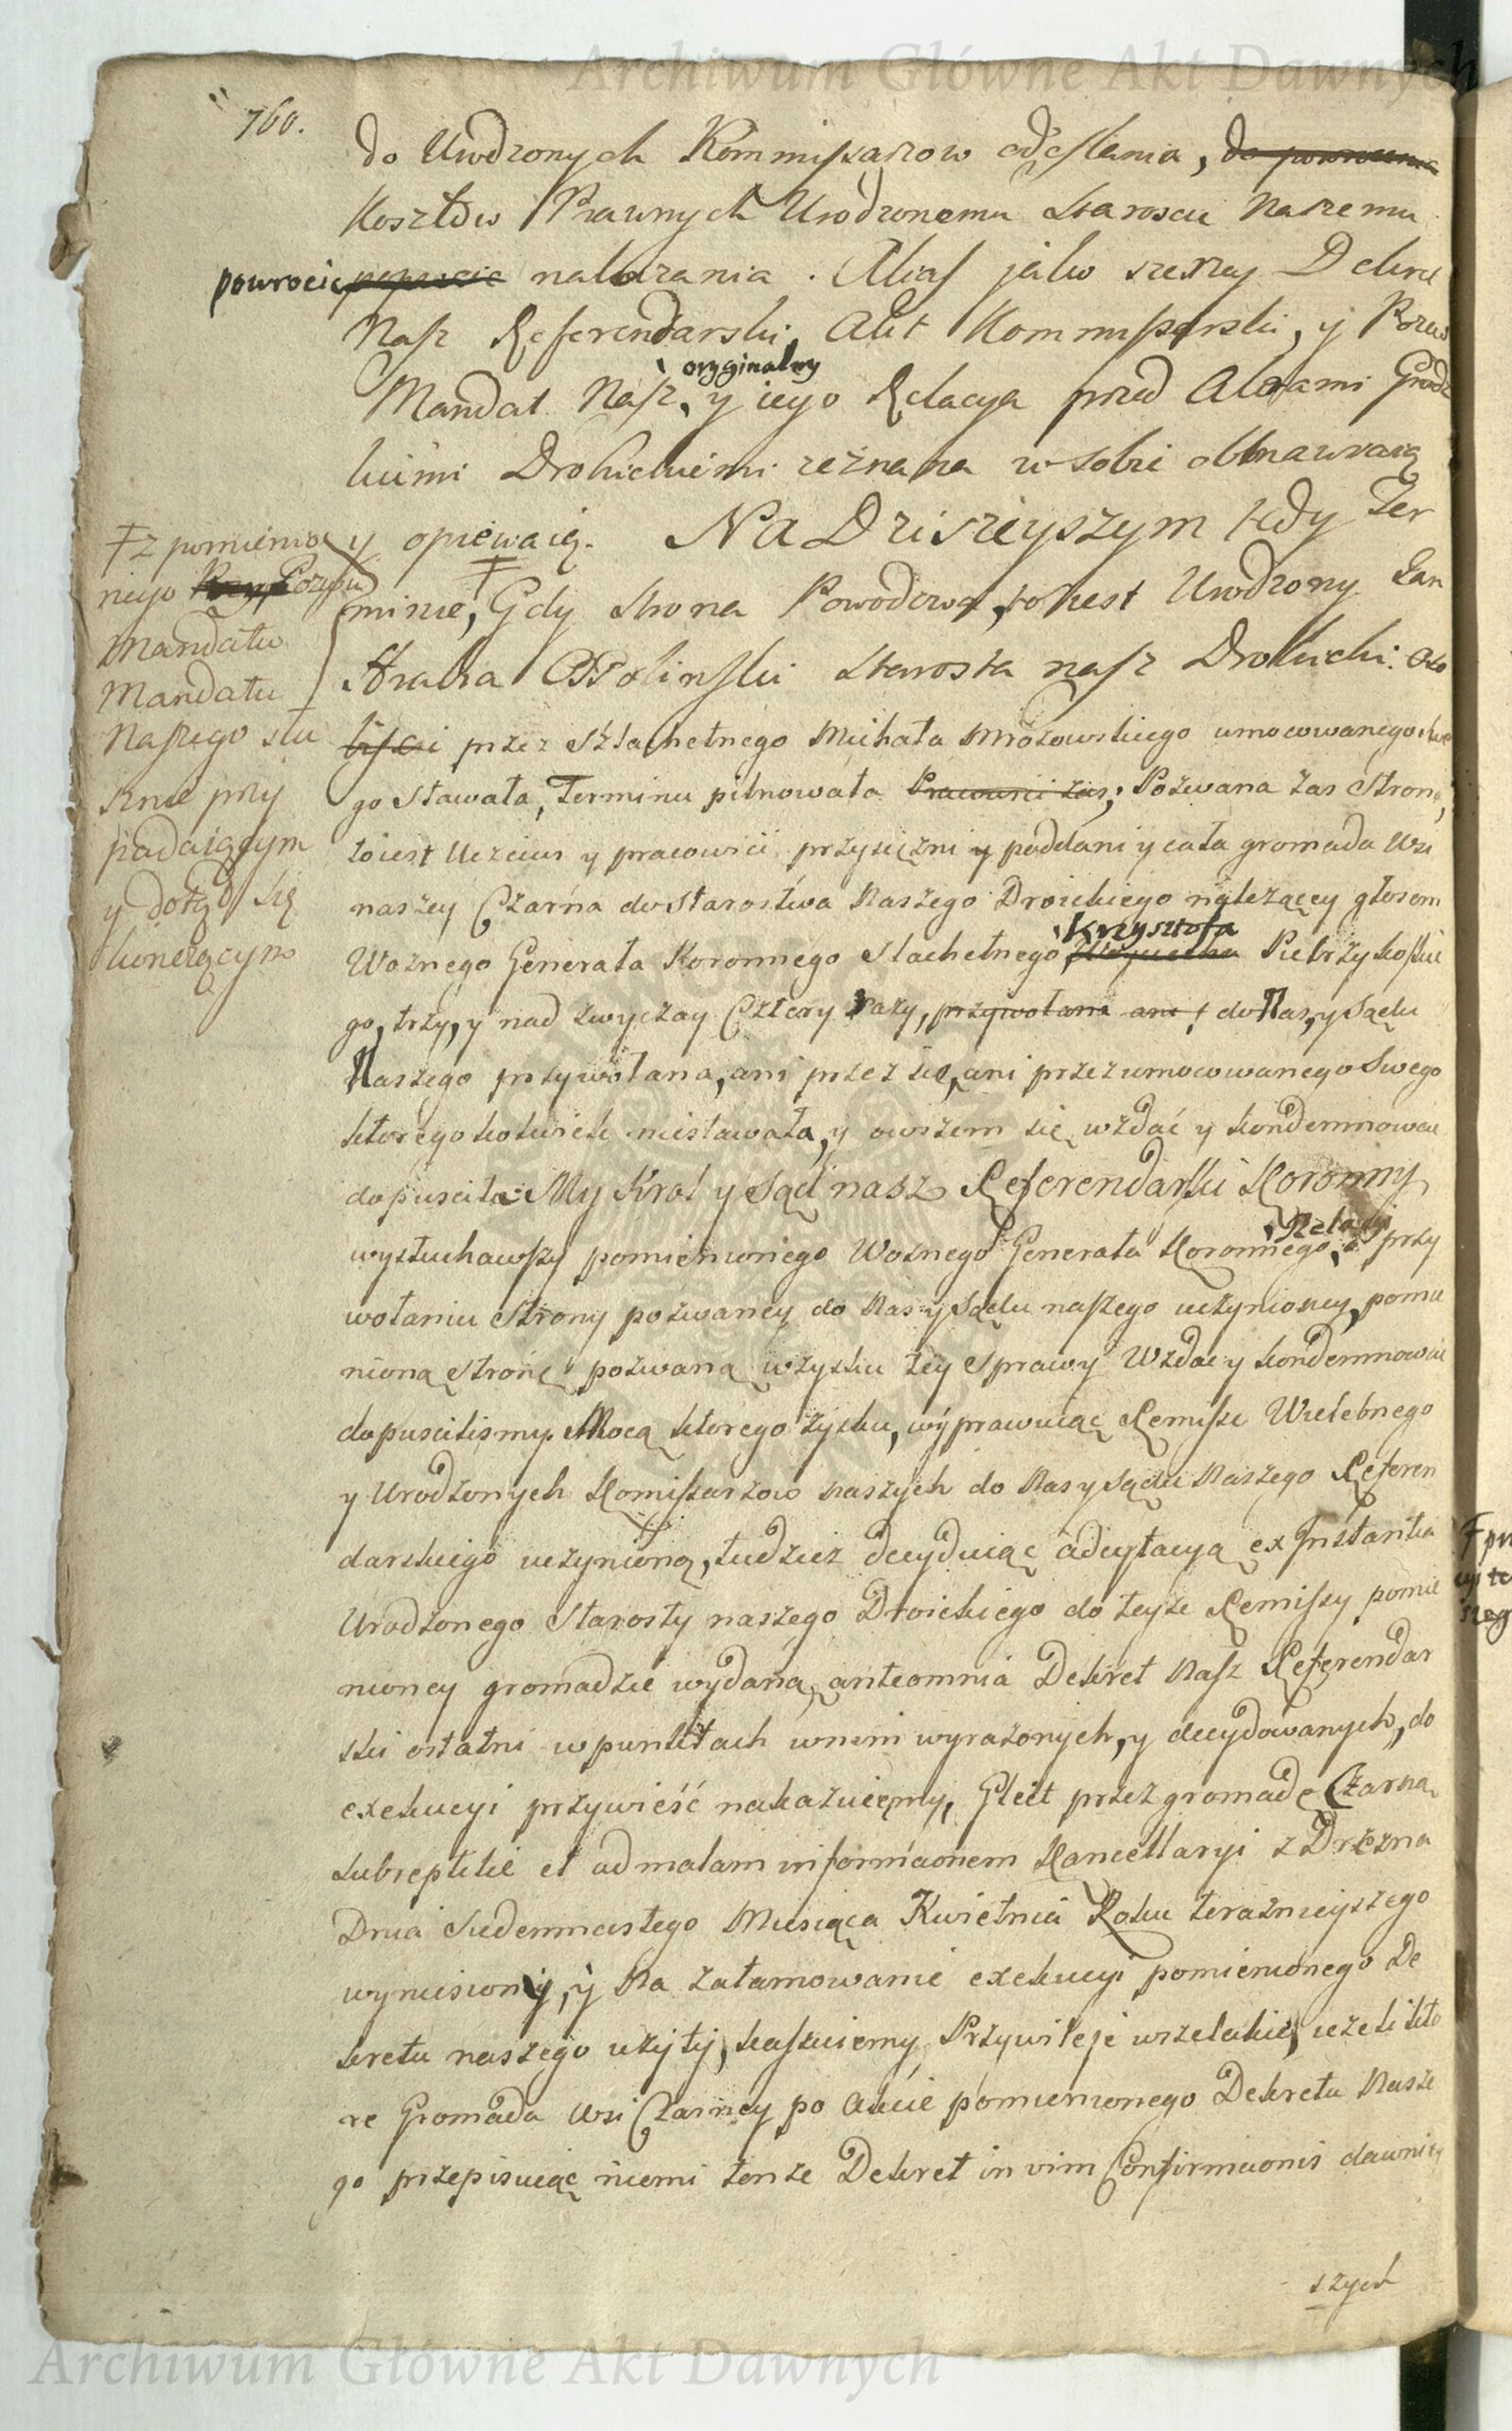 Archiwum Główne Akt Dawnych
760.
do Urodzonych Kommissarzow odesłania, do powrocenia
Kosztow Prawnych Urodzonemu Staroscie Naszemu
powrocic nakazania. Aliaſ jako szerzey Dekret
Naſz Referendarski, Akt Kommissarski, y Pozew
Mandat Naſz, oryginalny y iego Relacya przed Aktami Grodz
kiemi Drohickiemi zeznana w sobie obmawiaią
y opiewaią. Na Dzisieyszym tedy Ter
minie, ╪ Gdy Strona Powodowa, to iest Urodzony Jan
Hrabia Ossolinſki Starosta naſz Drohicki Oso
biscie przez Szlachetnego Michała Mrozowskiego umocowanego swe
go stawała, Terminu pilnowała Pracowici zas; Pozwana zas Strona,
to iest Uczciwi y pracowici przysiężni y poddani y cała gromada wsi
naszey Czarna do Starostwa Naszego Droickiego należącey głosem
Woznego Generała Koronnego Slachetnego Krzysztofa Pietrzykoſkie
go, trzy, y nad zwyczay Cztery razy, przywołana ani do Nas, y Sądu
Naszego przywołana, ani przez się, ani przez umocowanego Swego
ktoregokolwiek niestawała, y owszem się wzdać y kondemnować
dopusciła. My Krol y Sąd nasz Referendarſki Koronny
wysłuchawſzy pomienionego Woznego Generała Koronnego, Relacyi przy
wołaniu Strony pozwaney do Nas y Sądu naſzego uczynioney, pomie
nioną stronę pozwaną w zysku tey Sprawy Wzdać y kondemnować
dopuscilismy. Mocą ktorego zysku, wyprawuiąc Remiſse Wielebnego
y Urodzonych Komiſsarzow naszych do Nas y Sądu Naszego Referen
darskiego uczynioną, tudziez decyduiąc adcytacyą ex Instantia
Urodzonego Starosty naszego Droickiego do teyze Remiſsy pomie
nioney gromadzie wydaną, anteomnia Dekret Naſz Referendar
ski ostatni w punktach w nim wyrażonych, y decydowanych, do
exekucyi przywieść nakazuiemy, Gleit przez gromadę Czarną
subreptitie et ad malam informaonem Kancellaryi z Drezna
Dnia Siedemnastego Miesiąca Kwietnia Roku teraznieyszego
wyniesiony, y Na zatamowanie exekucyi pomienionego De
kretu naszego użyty, kaſsuiemy Przywileje wszelakie, ieżeli kto
re Gromada wsi Czarney po Akcie pomienionego Dekretu Nasze
go przepisuiąc niemi tenze Dekret in vim Confirmaonis dawniey
szych
╪ z pomienio
nego Pozywu
Mandatu
Mandatu
Naſzego słu
sznie przy
padaiącym
y dotąd się
kończącym
Archiwum Główne Akt Dawnych